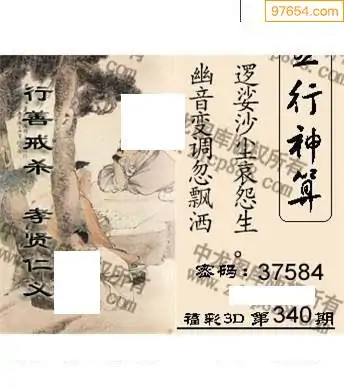 97654.com
行神算
逻娑沙尘哀怨生。
幽音变调忽飘洒
行善戒杀 孝贤仁义
密码:37584
福彩3D 第340期